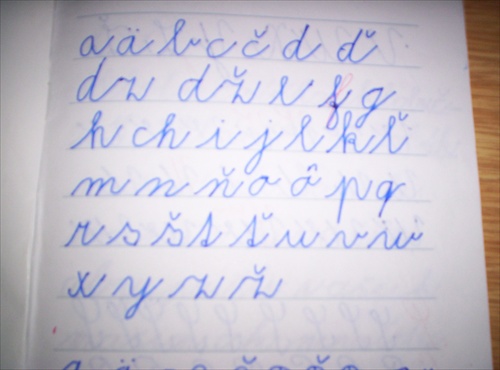 a ä b c č d ď
dz dž e f g
h ch i j l k ľ
m n ň o ô p q
r s š t ť u v w
x y z ž